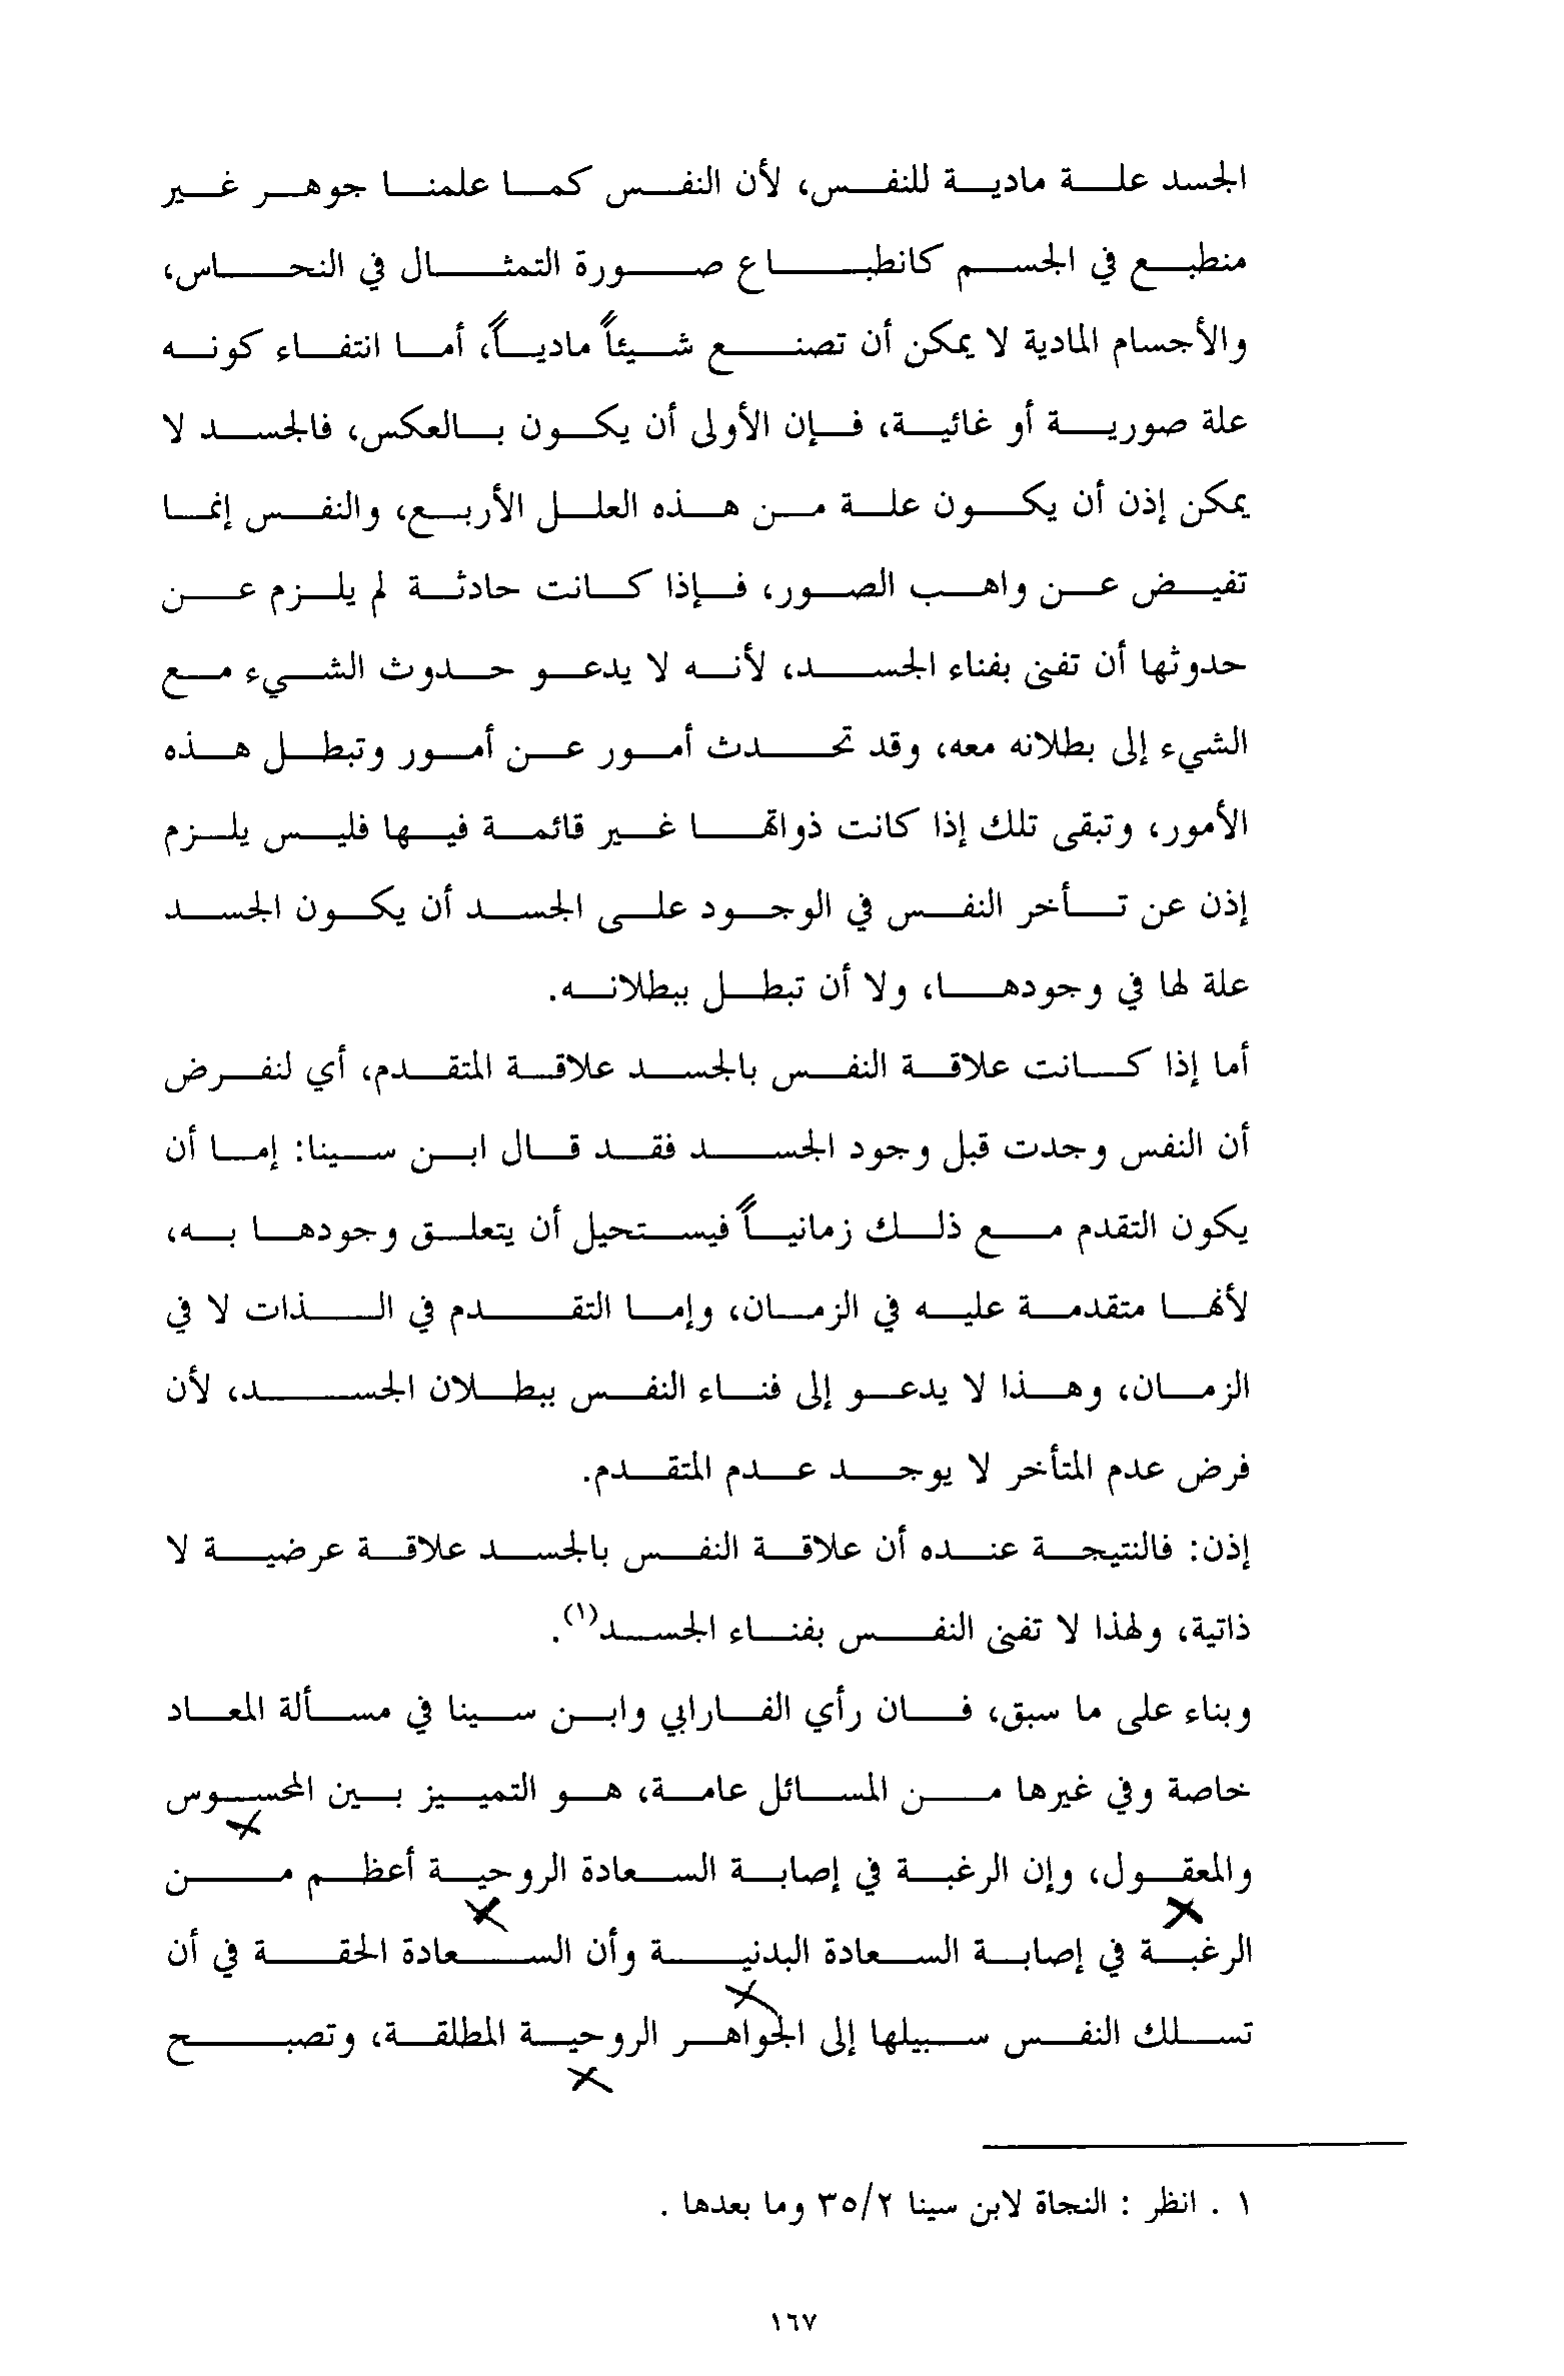 الجسد علة مادية للنفس، لأن النفس كما علمنا جوهر غير
منطبع في الجسم كانطباع صورة التمثال في النحاس،
والأجسام المادية لا يمكن أن تصنع شيئاً مادياً، أما انتفاء كونه
علة صورية أو غائية، فإن الأولى أن يكون بالعكس، فالجسد لا
يمكن إذن أن يكون علة من هذه العلل الأربع، والنفس إنما
تفيض عن واهب الصور، فإذا كانت حادثة لم يلزم عن
حدوثها أن تفنى بفناء الجسد، لأنه لا يدعو حدوث الشيء مع
الشيء إلى بطلانه معه، وقد تحدث أمور عن أمور وتبطل هذه
الأمور، وتبقى تلك إذا كانت ذواتها غير قائمة فيها فليس يلزم
إذن عن تأخر النفس في الوجود على الجسد أن يكون الجسد
علة لها في وجودها، ولا أن تبطل ببطلانه.
أما إذا كانت علاقة النفس بالجسد علاقة المتقدم، أي لنفرض
أن النفس وجدت قبل وجود الجسد فقد قال ابن سينا: إما أن
يكون التقدم مع ذلك زمانياً فيستحيل أن يتعلق وجودها به،
لأنها متقدمة عليه في الزمان، وإما التقدم في الذات لا في
الزمان، وهذا لا يدعو إلى فناء النفس ببطلان الجسد، لأن
فرض عدم المتأخر لا يوجد عدم المتقدم.
إذن: فالنتيجة عنده أن علاقة النفس بالجسد علاقة عرضية لا
ذاتية، ولهذا لا تفنى النفس بفناء الجسد(١).
وبناء على ما سبق، فان رأي الفارابي وابن سينا في مسألة المعاد
خاصة وفي غيرها من المسائل عامة، هو التمييز بين المحسوس
والمعقول، وإن الرغبة في إصابة السعادة الروحية أعظم من
الرغبة في إصابة السعادة البدنية وأن السعادة الحقة في أن
تسلك النفس سبيلها إلى الجواهر الروحية المطلقة، وتصبح
١ . انظر : النجاة لابن سينا ٣٥/٢ وما بعدها .
١٦٧